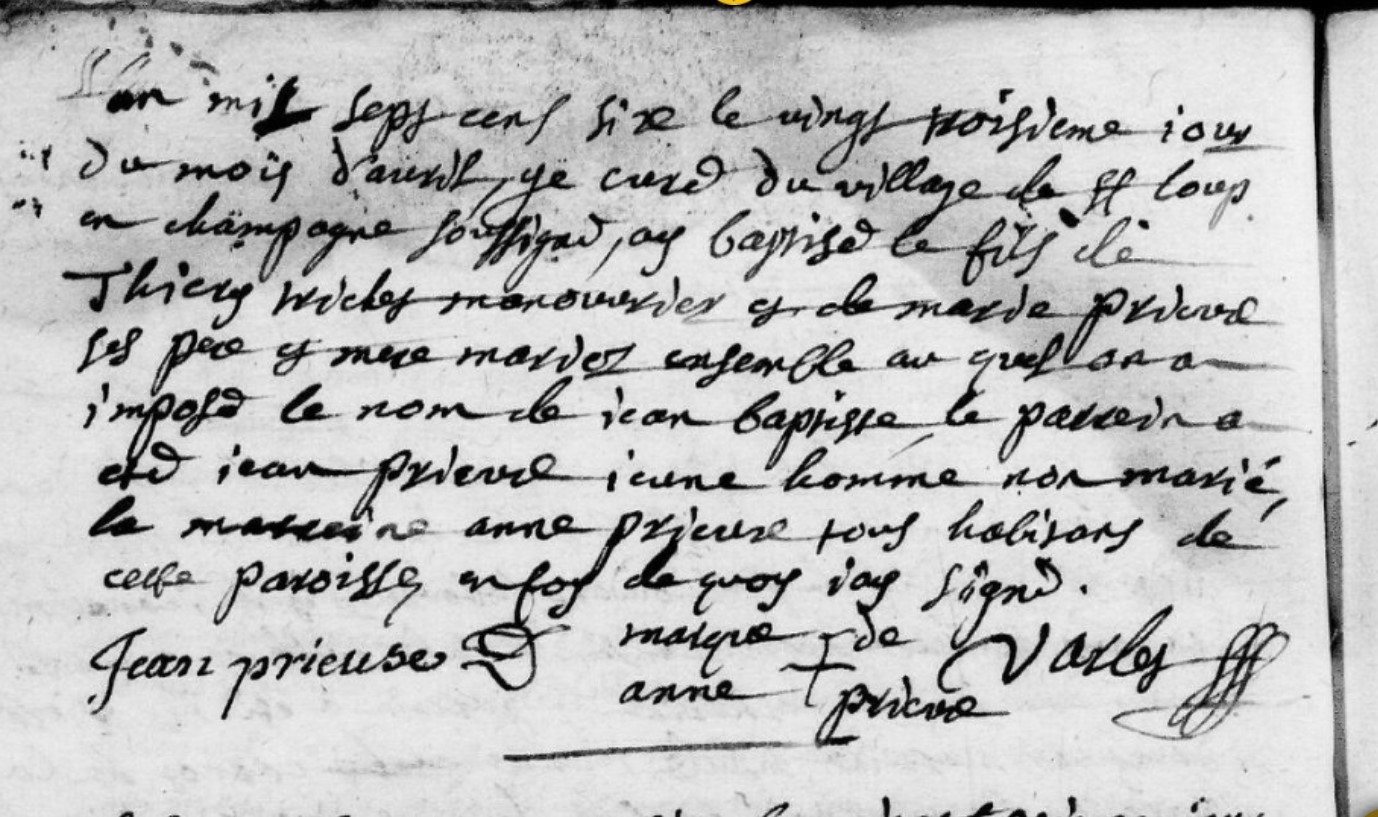 L'an mil sept cens sixe le vingt troisieme iour
du mois d'avril, ye curé du village de st loup
en champagne soussigné, ay baptisé le fils de
Thiery trichet manouvrier et de marie prieure
ses pere et mere mariez ensemble au quel on a
imposé le nom de iean baptiste, le parrein a
eté iean prieure ieune homme non marié,
la marreine anne prieure tous habitans de
cette paroisse, en foy de quoy iay signé.
Jean prieuse marque de Varlet
anne prieure